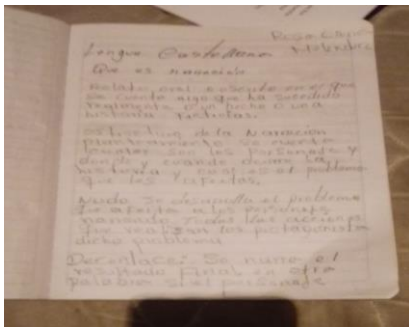 Rosa
Lengua Castellana
Que es narración
Relato oral o escrito en el que
se cuenta algo que ha sucedido
o un hecho o una
historia ficticias.
de la Narracion
planteamiento se cuenta
son los personajes y
donde y cuando ocurre la
historia y cual es el problema
que les
Nudo se desarrolla el problema
que afecta a los personajes
narrando todas las acciones
que realizan los protagonista
dicho problema
Desenlace: Se narra el
resultado final en otra
palabra si el personaje